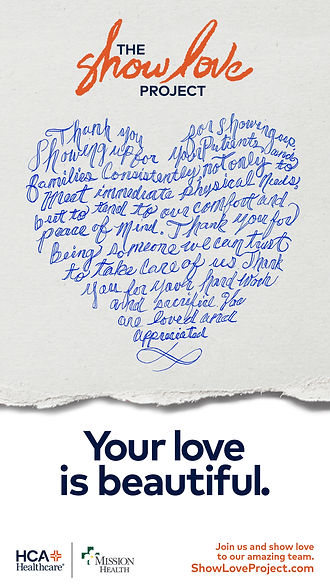 THE
show love
PROJECT
Thank you for showing up.
Showing up for your Patients and
families consistently, not only to
meet immediate physical needs,
but to tend to our comfort and
peace of mind. Thank you for
Being someone we can trust
to take care of us Thank
you for your hard work
and sacrifice You
are loved and
appreciated
Your love
is beautiful.
HCA
Healthcare®
MISSION
HEALTH
Join us and show love
to our amazing team.
ShowLoveProject.com